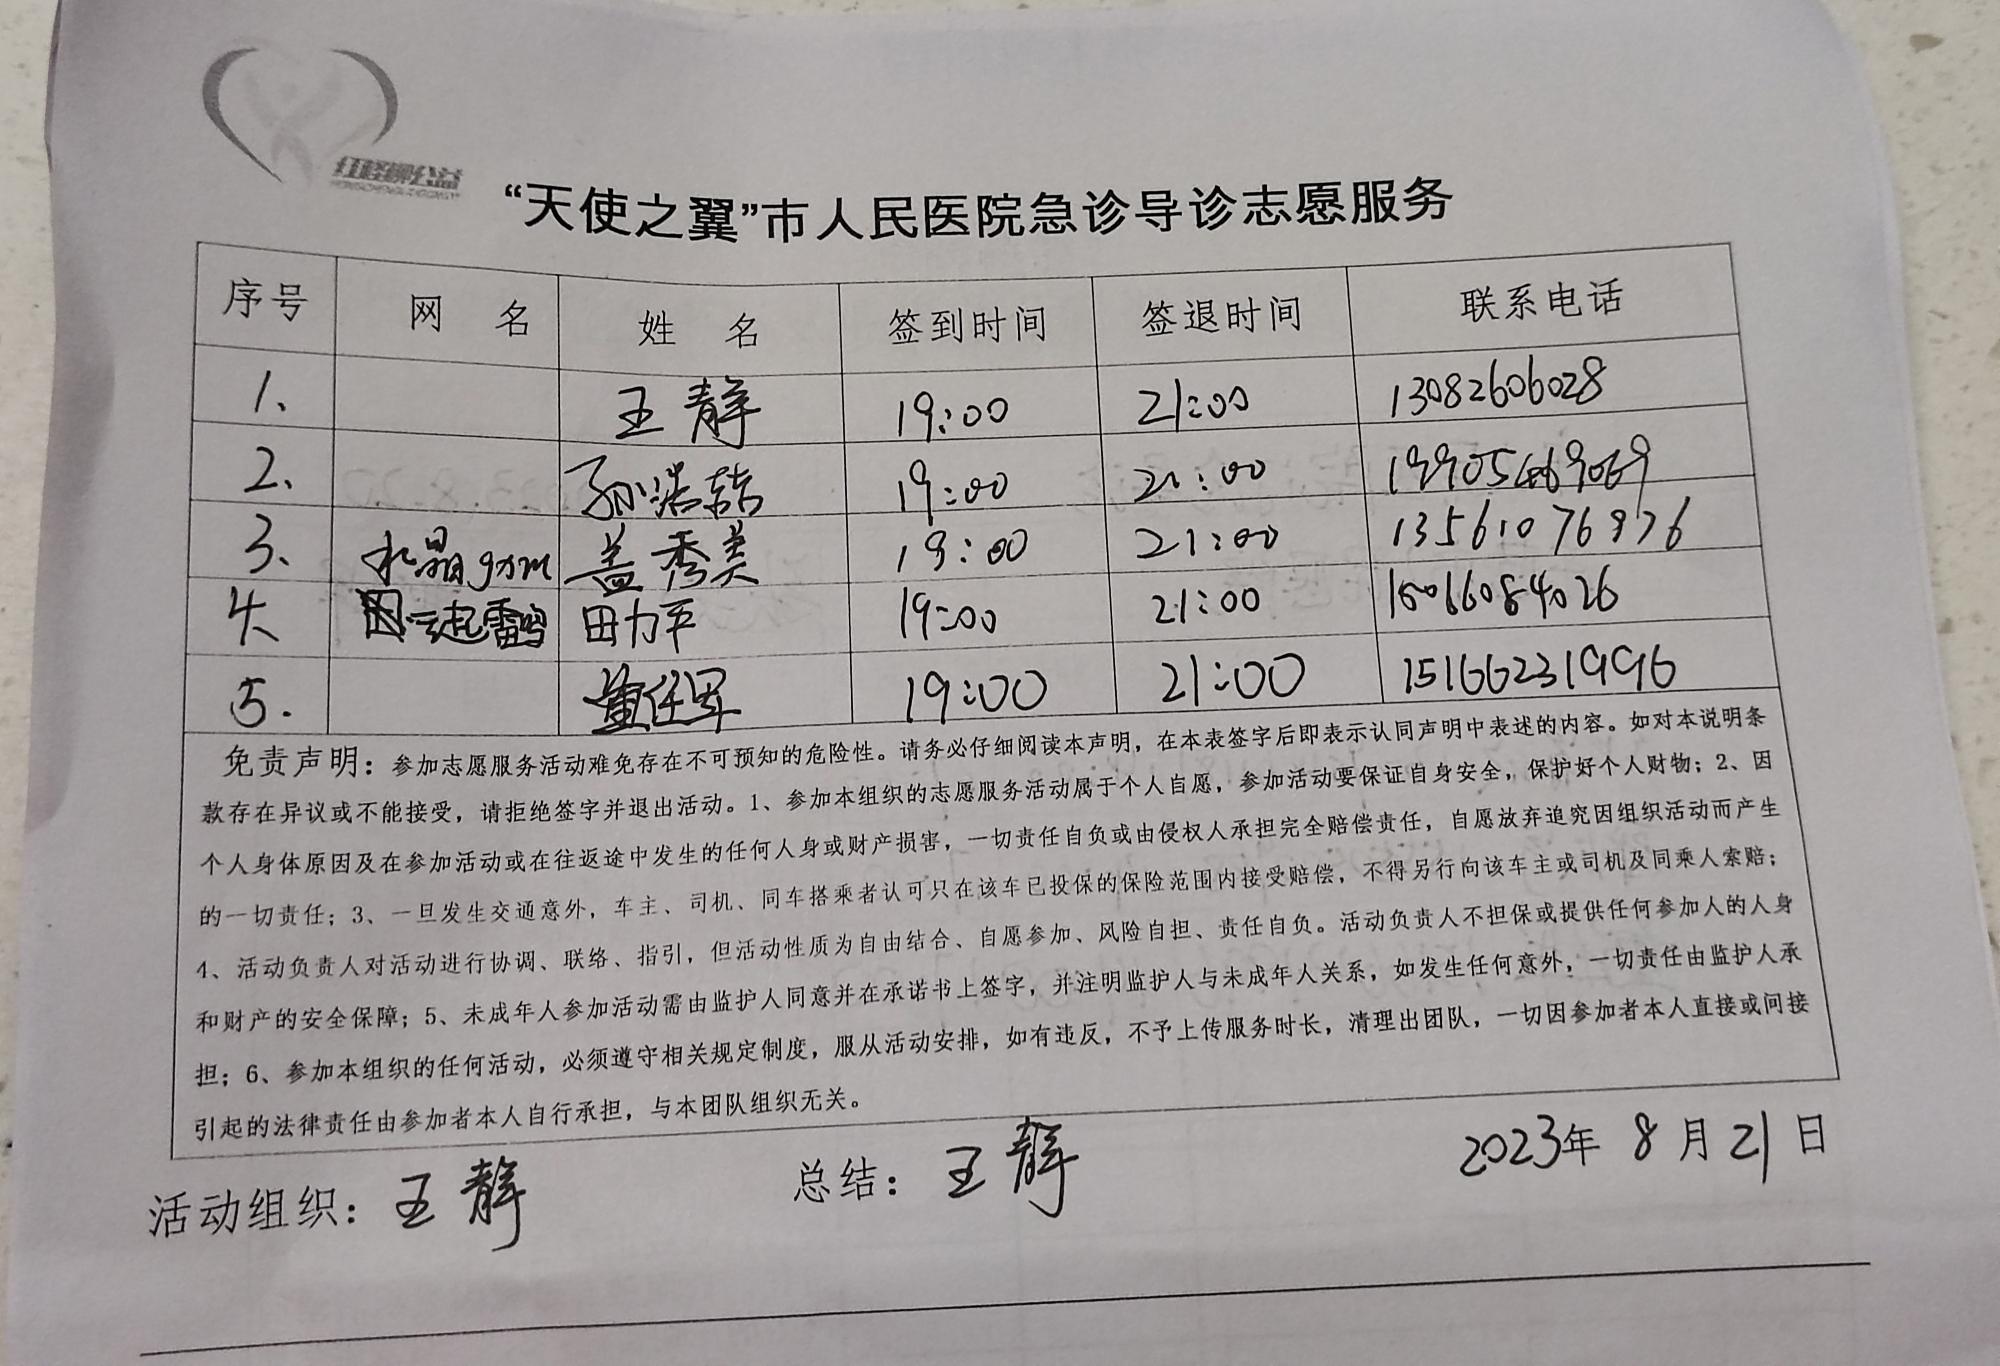 红柽柳公益
“天使之翼”市人民医院急诊导诊志愿服务
序号 网 名 姓 名 签到时间 签退时间 联系电话
1、 王静 19:00 21:00 13082606028
2、 19:00 21:00
3、 水晶 盖秀美 19:00 21:00 13561076976
4、 云起雷鸣 田力平 19:00 21:00
5. 董任军 19:00 21:00 15166231996
免责声明：参加志愿服务活动难免存在不可预知的危险性。请务必仔细阅读本声明，在本表签字后即表示认同声明中表述的内容。如对本说明条
款存在异议或不能接受，请拒绝签字并退出活动。1、参加本组织的志愿服务活动属于个人自愿，参加活动要保证自身安全，保护好个人财物；2、因
个人身体原因及在参加活动或在往返途中发生的任何人身或财产损害，一切责任自负或由侵权人承担完全赔偿责任，自愿放弃追究因组织活动而产生
的一切责任；3、一旦发生交通意外，车主、司机、同车搭乘者认可只在该车已投保的保险范围内接受赔偿，不得另行向该车主或司机及同乘人索赔；
4、活动负责人对活动进行协调、联络、指引，但活动性质为自由结合、自愿参加、风险自担、责任自负。活动负责人不担保或提供任何参加人的人身
和财产的安全保障；5、未成年人参加活动需由监护人同意并在承诺书上签字，并注明监护人与未成年人关系，如发生任何意外，一切责任由监护人承
担；6、参加本组织的任何活动，必须遵守相关规定制度，服从活动安排，如有违反，不予上传服务时长，清理出团队，一切因参加者本人直接或间接
引起的法律责任由参加者本人自行承担，与本团队组织无关。
活动组织：王静 总结：王静 2023年 8月 21日